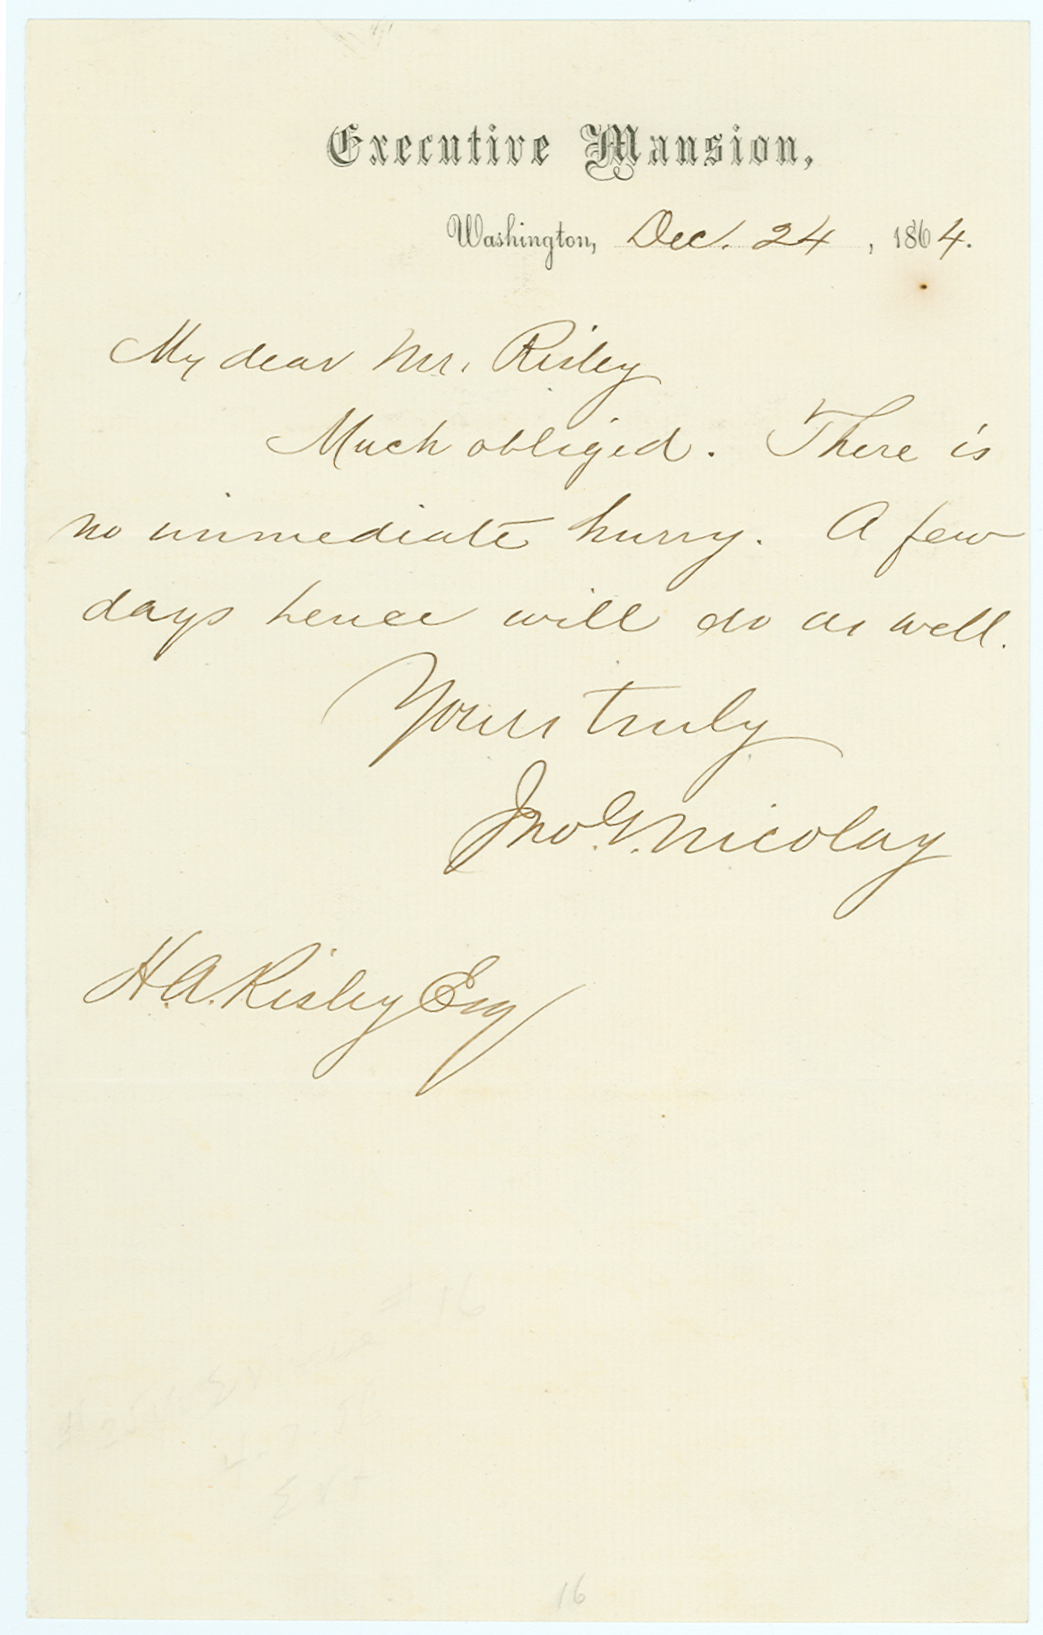 Executive Mansion,
Washington, Dec. 24, 1864.
My dear Mr. Risley
Much obliged. There is
no immediate hurry. A few
days hence will do as well.
Yours truly
Jno. G. Nicolay
H. A. Risley Esq
16